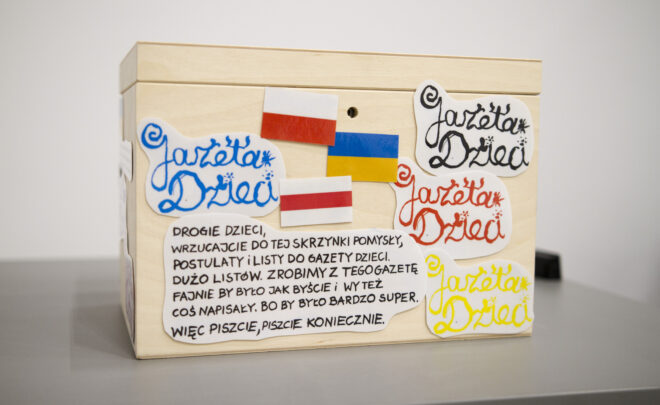 Gazeta
Dzieci
Gazeta
Dzieci
Gazeta
Dzieci
Gazeta
Dzieci
DROGIE DZIECI,
WRZUCAJCIE DO TEJ SKRZYNKI POMYSŁY,
POSTULATY i LISTY DO GAZETY DZIECI.
DUŻO LISTÓW. ZROBIMY Z TEGO GAZETĘ
FAJNIE BY BYŁO JAK BYŚCIE i WY TEŻ
COŚ NAPISAŁY. BO BY BYŁO BARDZO SUPER.
WIĘC PISZCIE, PISZCIE KONIECZNIE.